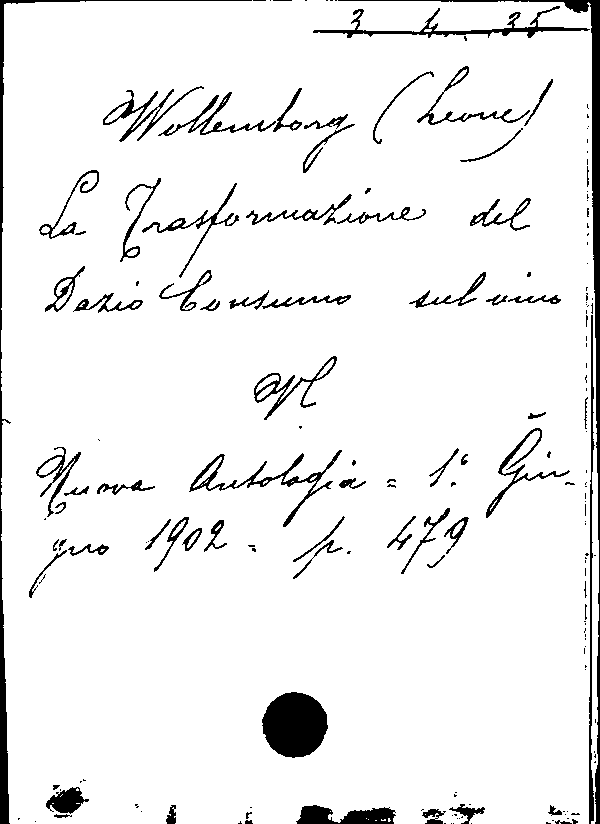 3. 4. 35
Wollemborg (Leone)
La Trasformazione del
Dazio Consumo sul vino
Nuova Antologia = 1° Giu-
gno 1902 = p. 479